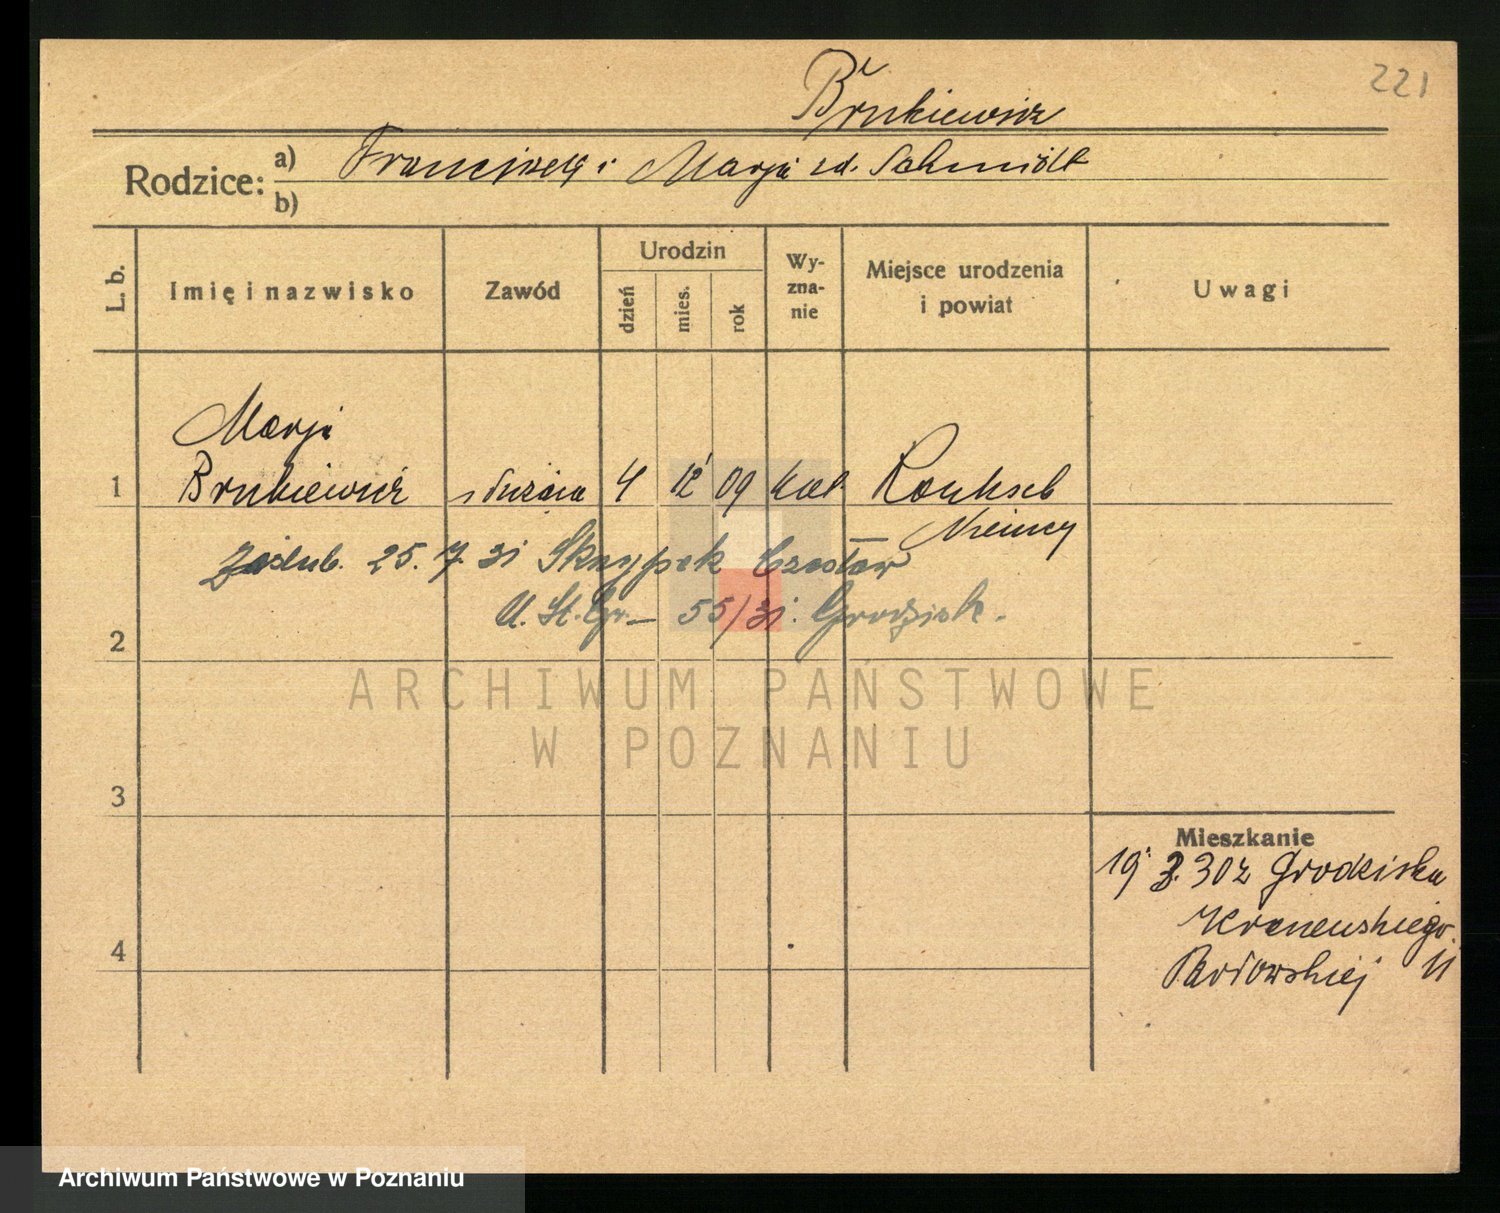 221
Brukiewicz
Rodzice: a) Franciszek i Marja zd. Schmidt
b)
L. b. Imię i nazwisko Zawód Urodzin dzień mies. rok Wy-zna-nie Miejsce urodzenia i powiat Uwagi
Marja
1 Brukiewicz służąca 4 12 09 kat
Niemcy
Zaślub. 25. 7. 31 Skrzypek Czesław
U. St. Gr. — 55/31. Grodzisk.
2
ARCHIWUM PAŃSTWOWE
W POZNANIU
3
Mieszkanie
19. 3. 30 z Grodziska
4
11
Archiwum Państwowe w Poznaniu